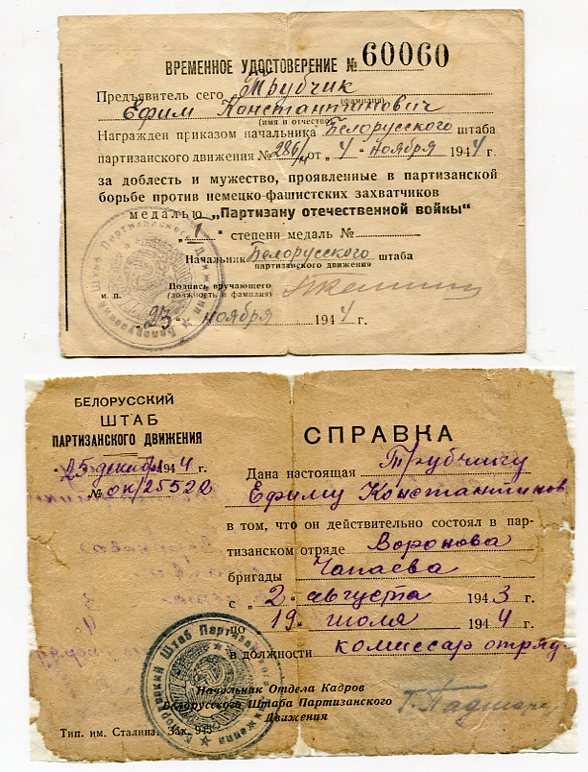 ВРЕМЕННОЕ УДОСТОВЕРЕНИЕ № 60060
Предъявитель сего Трубчик
(фамилия)
Ефим Константинович
(имя и отчество)
Награжден приказом начальника Белорусского штаба
партизанского движения № 286/н от „4" ноября 1944 г.
за доблесть и мужество, проявленные в партизанской
борьбе против немецко-фашистских захватчиков
медалью „Партизану отечественной войны"
„1" степени медаль №
Начальник Белорусского штаба
партизанского движения
Подпись вручающего
(должность и фамилия)
м. п.
„23" ноября 1944 г.
Штаб Партизанского Движения Белорусский
БЕЛОРУССКИЙ
ШТАБ
ПАРТИЗАНСКОГО ДВИЖЕНИЯ
„25" декабря 1944 г.
№ ок/25522
СПРАВКА
Дана настоящая Трубчику
Ефиму Константинов
в том, что он действительно состоял в пар-
тизанском отряде Воронова
бригады Чапаева
с „2" августа 1943 г.
по
19 июля 1944 г.
в должности комиссар отряд
Начальник Отдела Кадров
Белорусского Штаба Партизанского
Движения
Тип. им. Сталина. Зак. 945